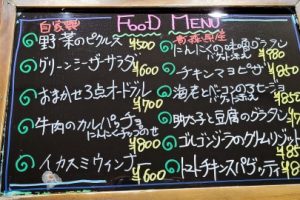 FOOD MENU
自家製
野菜のピクルス ¥500
グリーンシーザーサラダ ¥600
おまかせ3点オードブル ¥700
牛肉のカルパッチョ
にんにくチップのせ ¥800
イカスミウィンナ ¥600
にんにくの味噌グラタン
バケット添え ¥780
チキンマヨピザ ¥750
海老とベーコンのアヒージョ
バケット添え ¥850
明太子と豆腐のグラタン
ゴルゴンゾーラのクリームリゾット
トマトチキンスパゲッティ